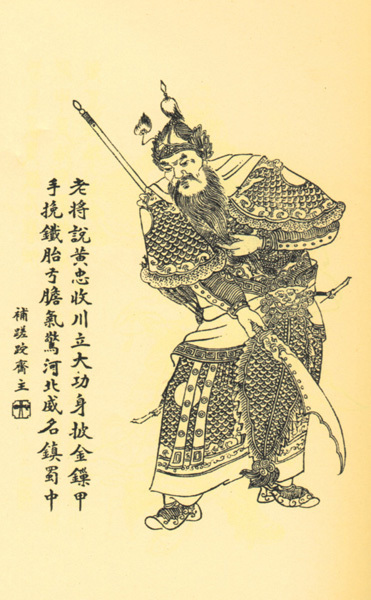 老将說黃忠收川立大功身披金鏁甲
手挽鐵胎弓膽氣驚河北威名鎮蜀中
補蹉跎齋主